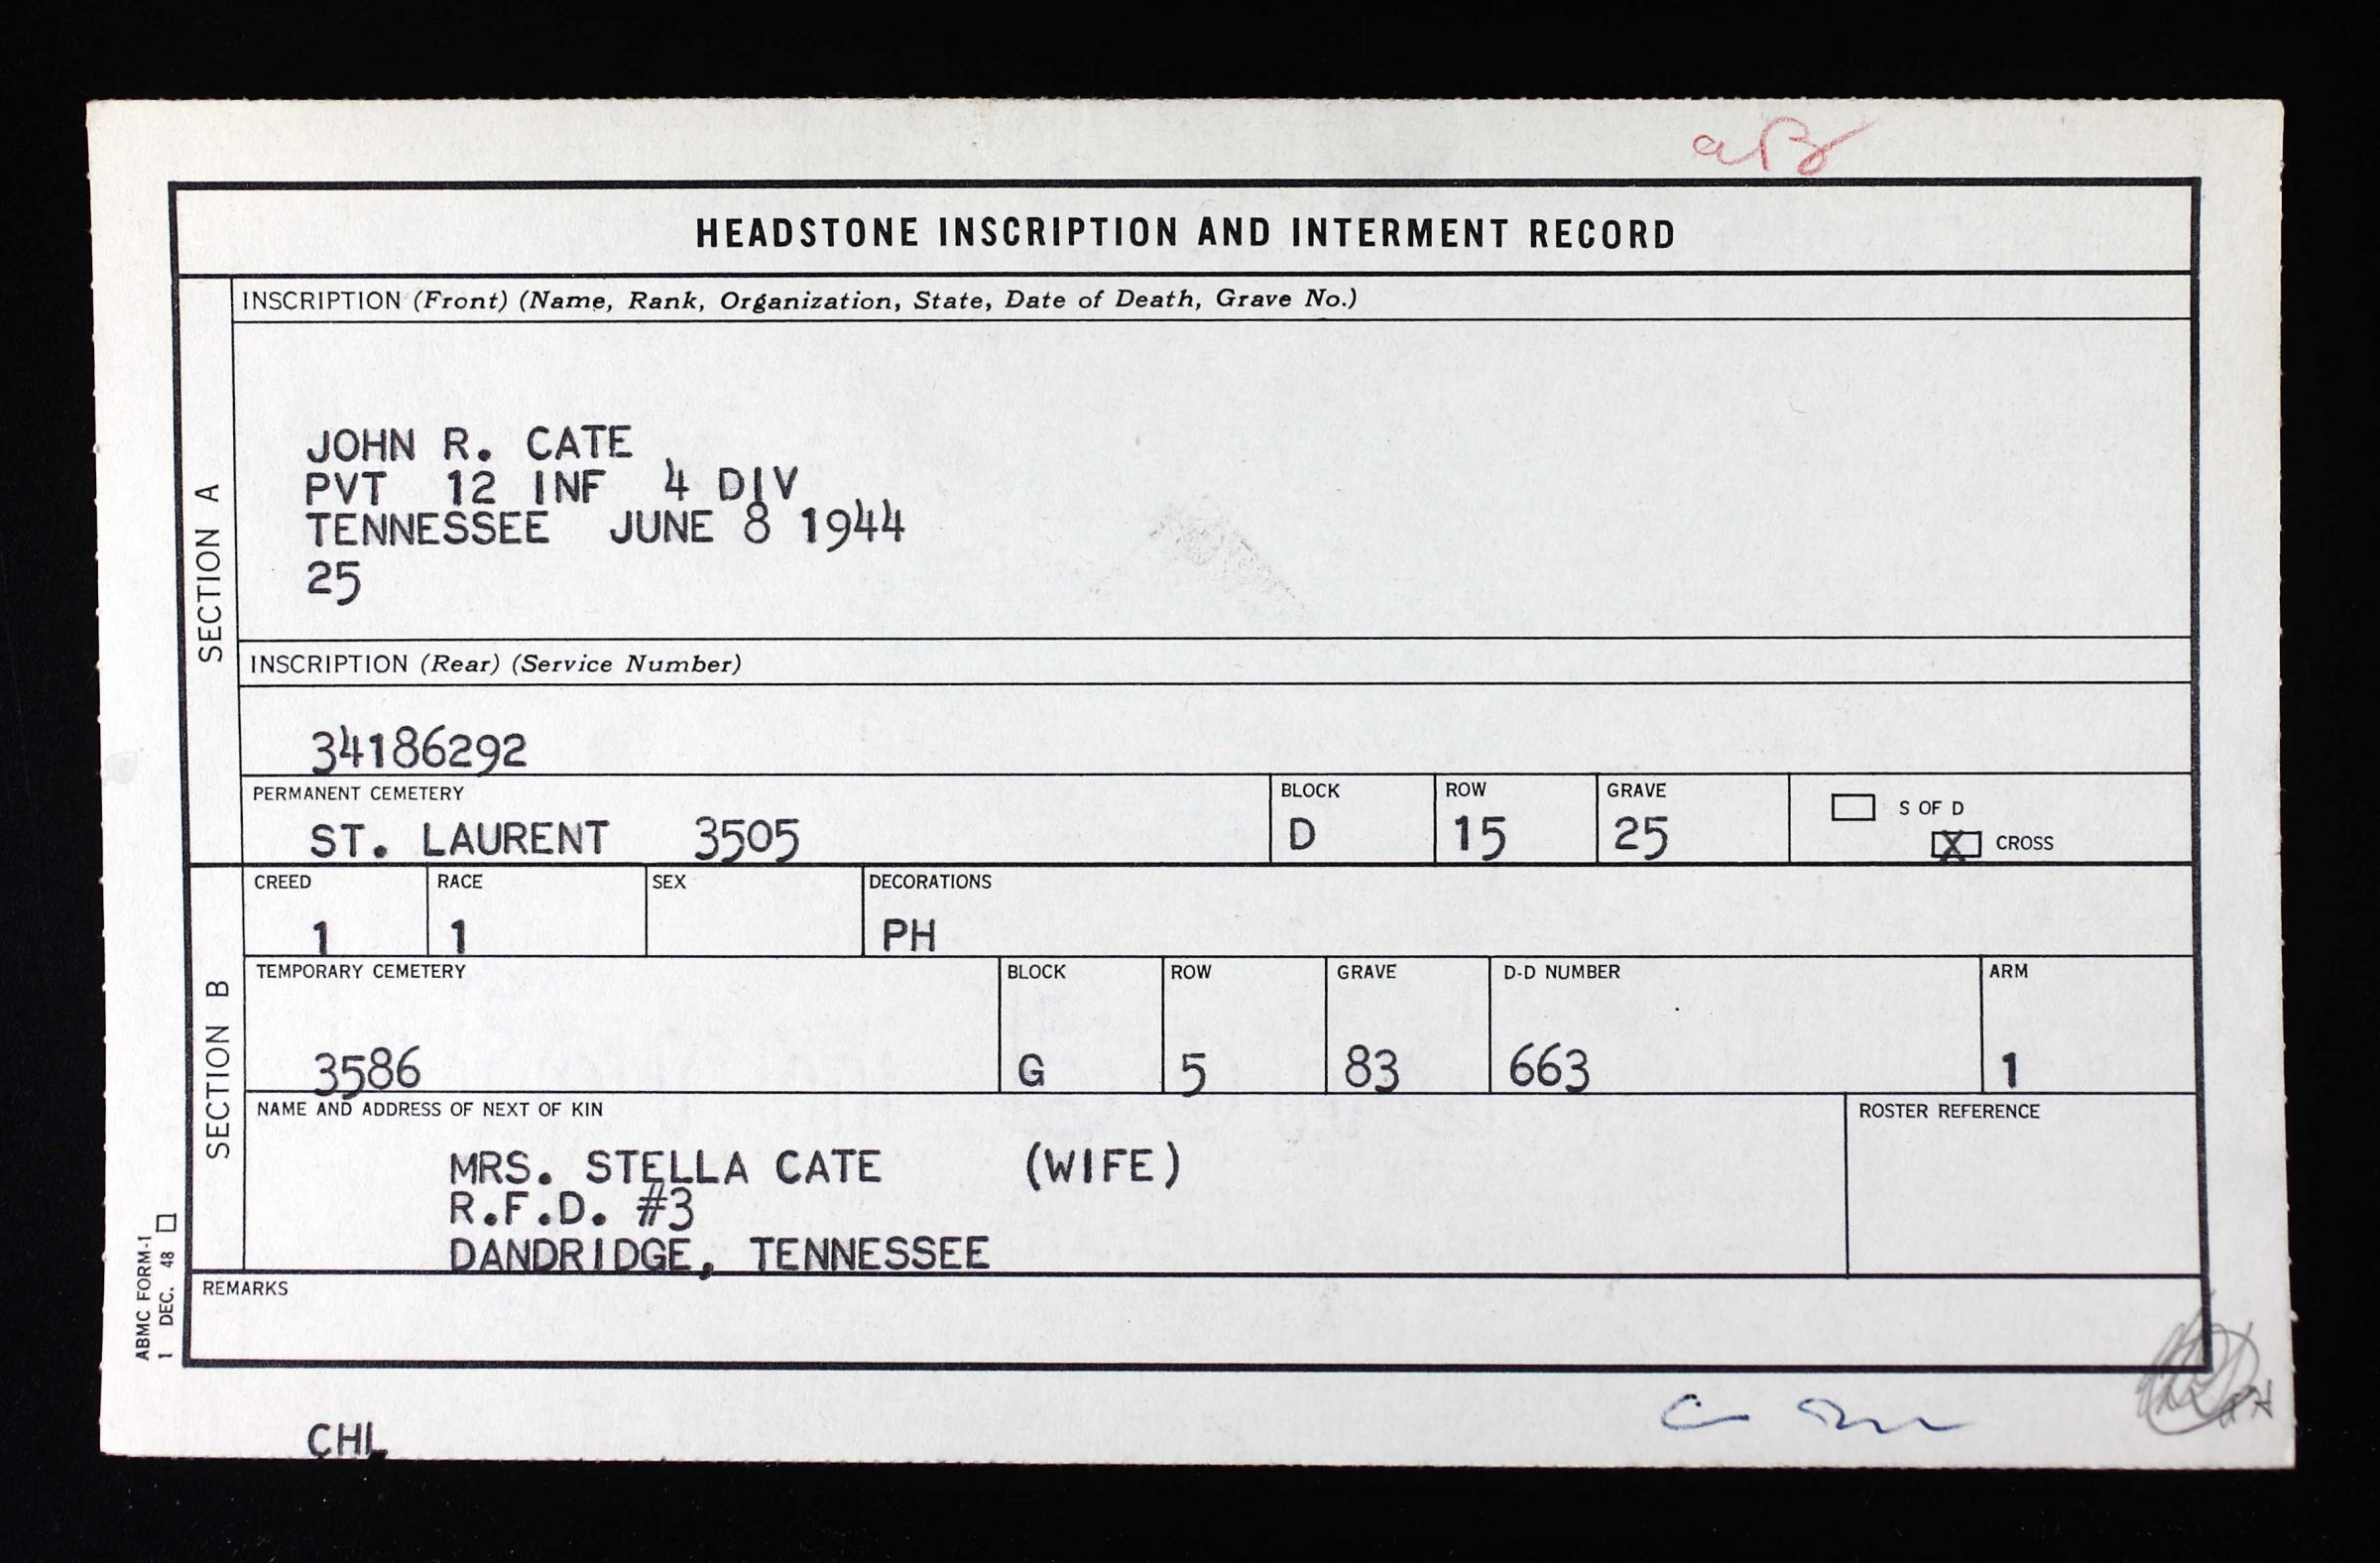 HEADSTONE INSCRIPTION AND INTERMENT RECORD
SECTION A
INSCRIPTION (Front) (Name, Rank, Organization, State, Date of Death, Grave No.)
JOHN R. CATE
PVT 12 INF 4 DIV
TENNESSEE JUNE 8 1944
25
INSCRIPTION (Rear) (Service Number)
34186292
PERMANENT CEMETERY BLOCK ROW GRAVE
ST. LAURENT 3505 D 15 25
S OF D
X CROSS
SECTION B
CREED RACE SEX DECORATIONS
1 1 PH
TEMPORARY CEMETERY BLOCK ROW GRAVE D-D NUMBER ARM
3586 G 5 83 663 1
NAME AND ADDRESS OF NEXT OF KIN ROSTER REFERENCE
MRS. STELLA CATE (WIFE)
R.F.D. #3
DANDRIDGE, TENNESSEE
REMARKS
ABMC FORM-1
1 DEC. 48
CHL